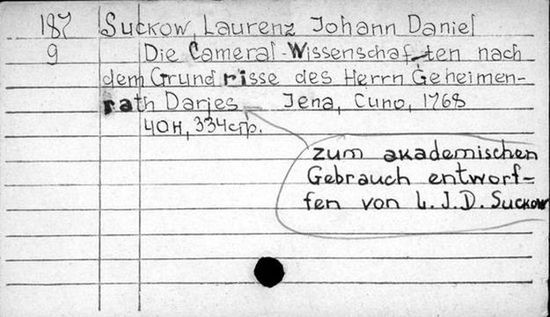 187 Suckow, Laurenz Johann Daniel
9 Die Cameral-Wissenschaften nach
dem Grundrisse des Herrn Geheimen-
rath Darjes Jena, Cuno, 1768
40H, 334стр.
zum akademischen
Gebrauch entworf-
fen von L. J. D. Suckow